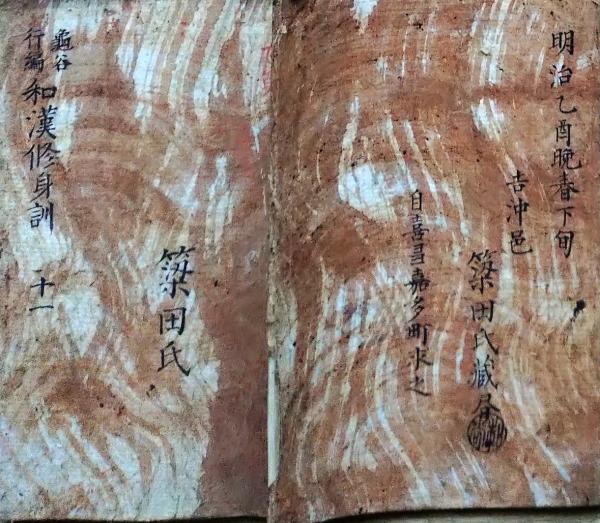 明治乙酉晩春下旬
吉沖邑
簗田氏藏書
自喜嘉多町求之
簗田氏
龜谷
行編
和漢修身訓 十一